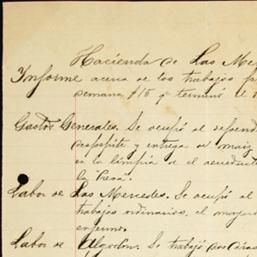 Hacienda de Las Me
Informe acerca de los trabajos
semana #15 q. terminó el
Gastos Generales. Se ocupó el dependi
despepite y entrega de maiz
en la limpia de el acueducto
la Presa.
Labor de Las Mercedes. Se ocupó el
trabajos ordinarios, el mayor
enfermo.
Labor de Algodon. Se trabajó con